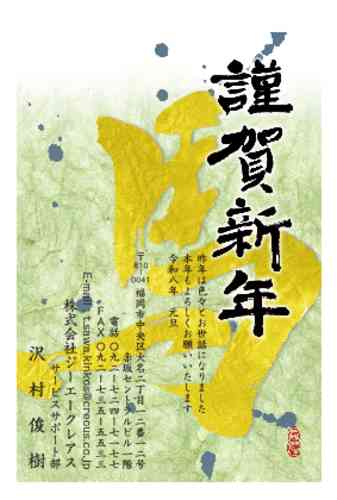 謹賀新年
昨年は色々とお世話になりました
本年もよろしくお願いいたします
令和八年 元旦
馬
〒810-0041 福岡市中央区大名二丁目一二番一二号
赤坂セントラルビル一階
電話 〇九二-七二四-七一七七
FAX 〇九二-七三五-五五三三
E-mail t.sawa.kinkos@creous.co.jp
株式会社ジーエークレアス
サービスサポート部
沢村俊樹